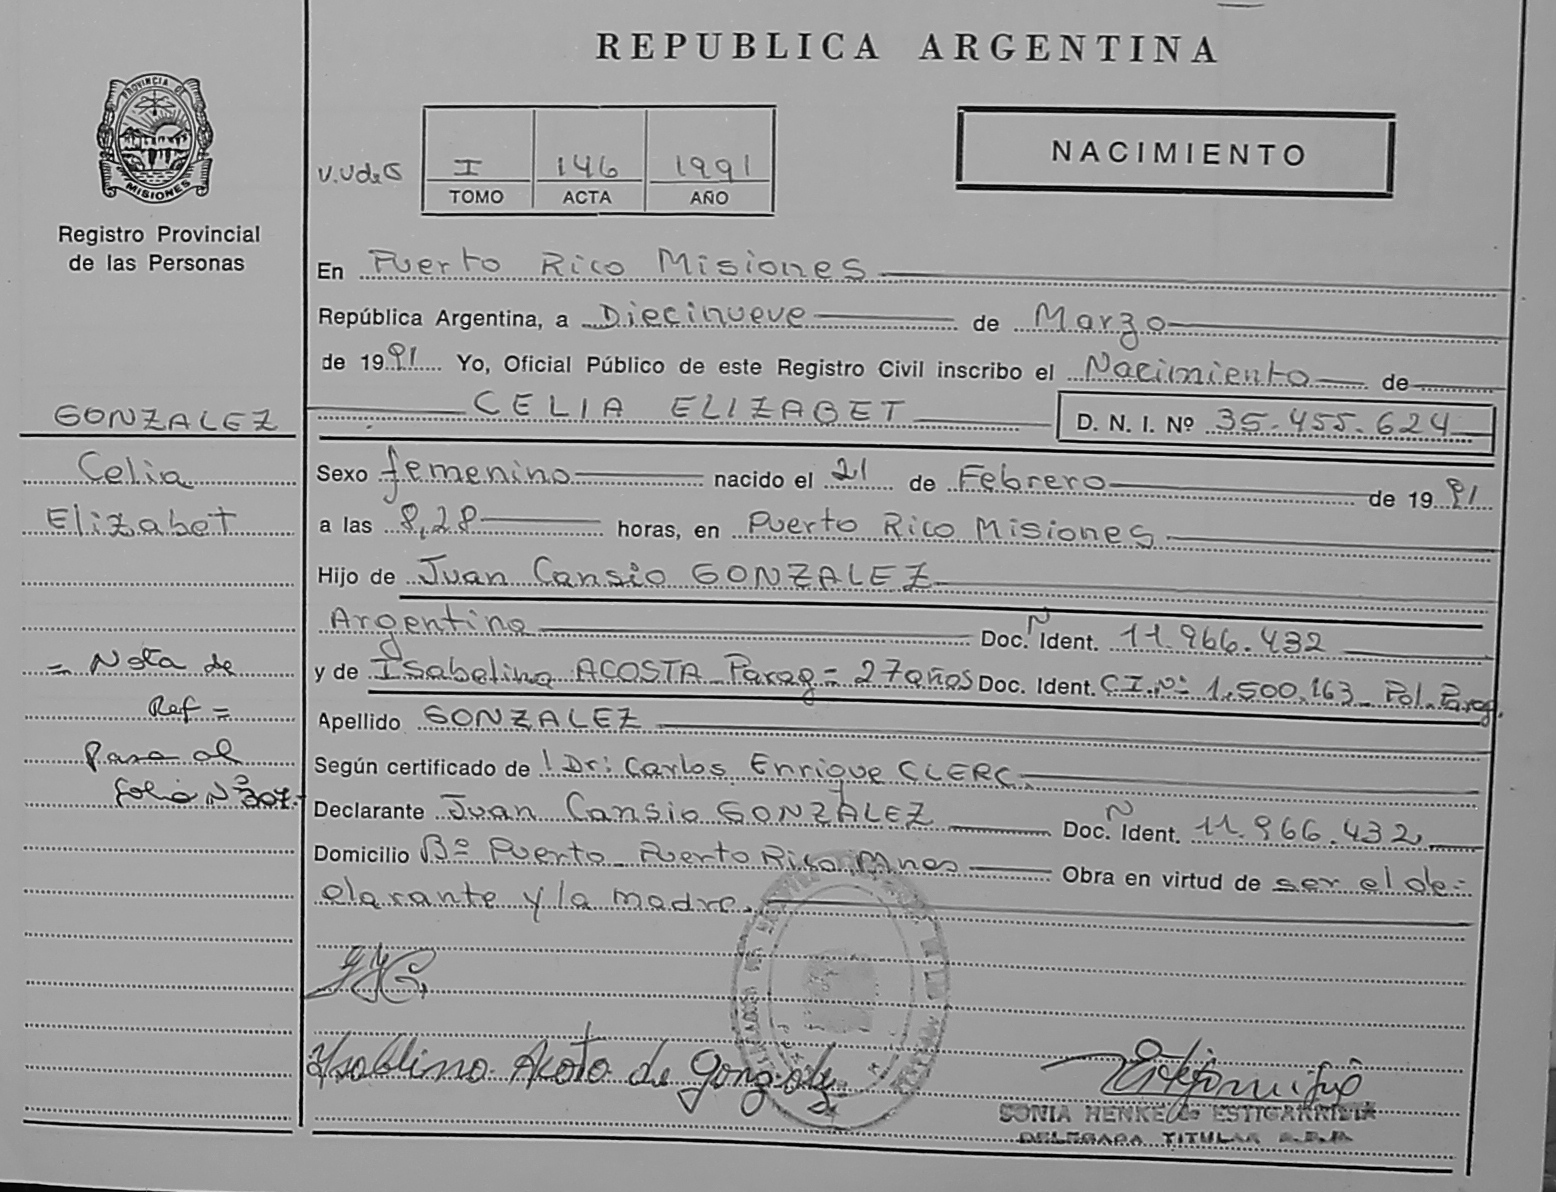 REPUBLICA ARGENTINA
PROVINCIA DE
MISIONES
Registro Provincial
de las Personas
V.U de S
I 146 1991
TOMO ACTA AÑO
NACIMIENTO
En Puerto Rico Misiones
República Argentina, a Diecinueve de Marzo
de 1991 Yo, Oficial Público de este Registro Civil inscribo el Nacimiento de
GONZALEZ
CELIA ELIZABET D. N. I. Nº 35.455.624
Celia
Sexo femenino nacido el 21 de Febrero de 1991
Elizabet
a las 8,28 horas, en Puerto Rico Misiones
Hijo de Juan Cansio GONZALEZ
Argentino Doc. N Ident. 11.966.432
= Nota de
Ref =
Pasa al
folio Nº 307.-
y de Isabelina ACOSTA Parag = 27 años Doc. Ident. C.I.Nº 1.500.163 Pol. Parag.
Apellido GONZALEZ
Según certificado de l Dr: Carlos Enrique CLERC.
Declarante Juan Cansio GONZALEZ Doc. N Ident. 11.966.432
Domicilio Bº Puerto - Puerto Rico Mnes Obra en virtud de ser el de=
clarante y la madre.
Isablina Acota de Gonzalez
SONIA HENKE de ESTIGARRIBIA
DELEGADA TITULAR R.P.P.